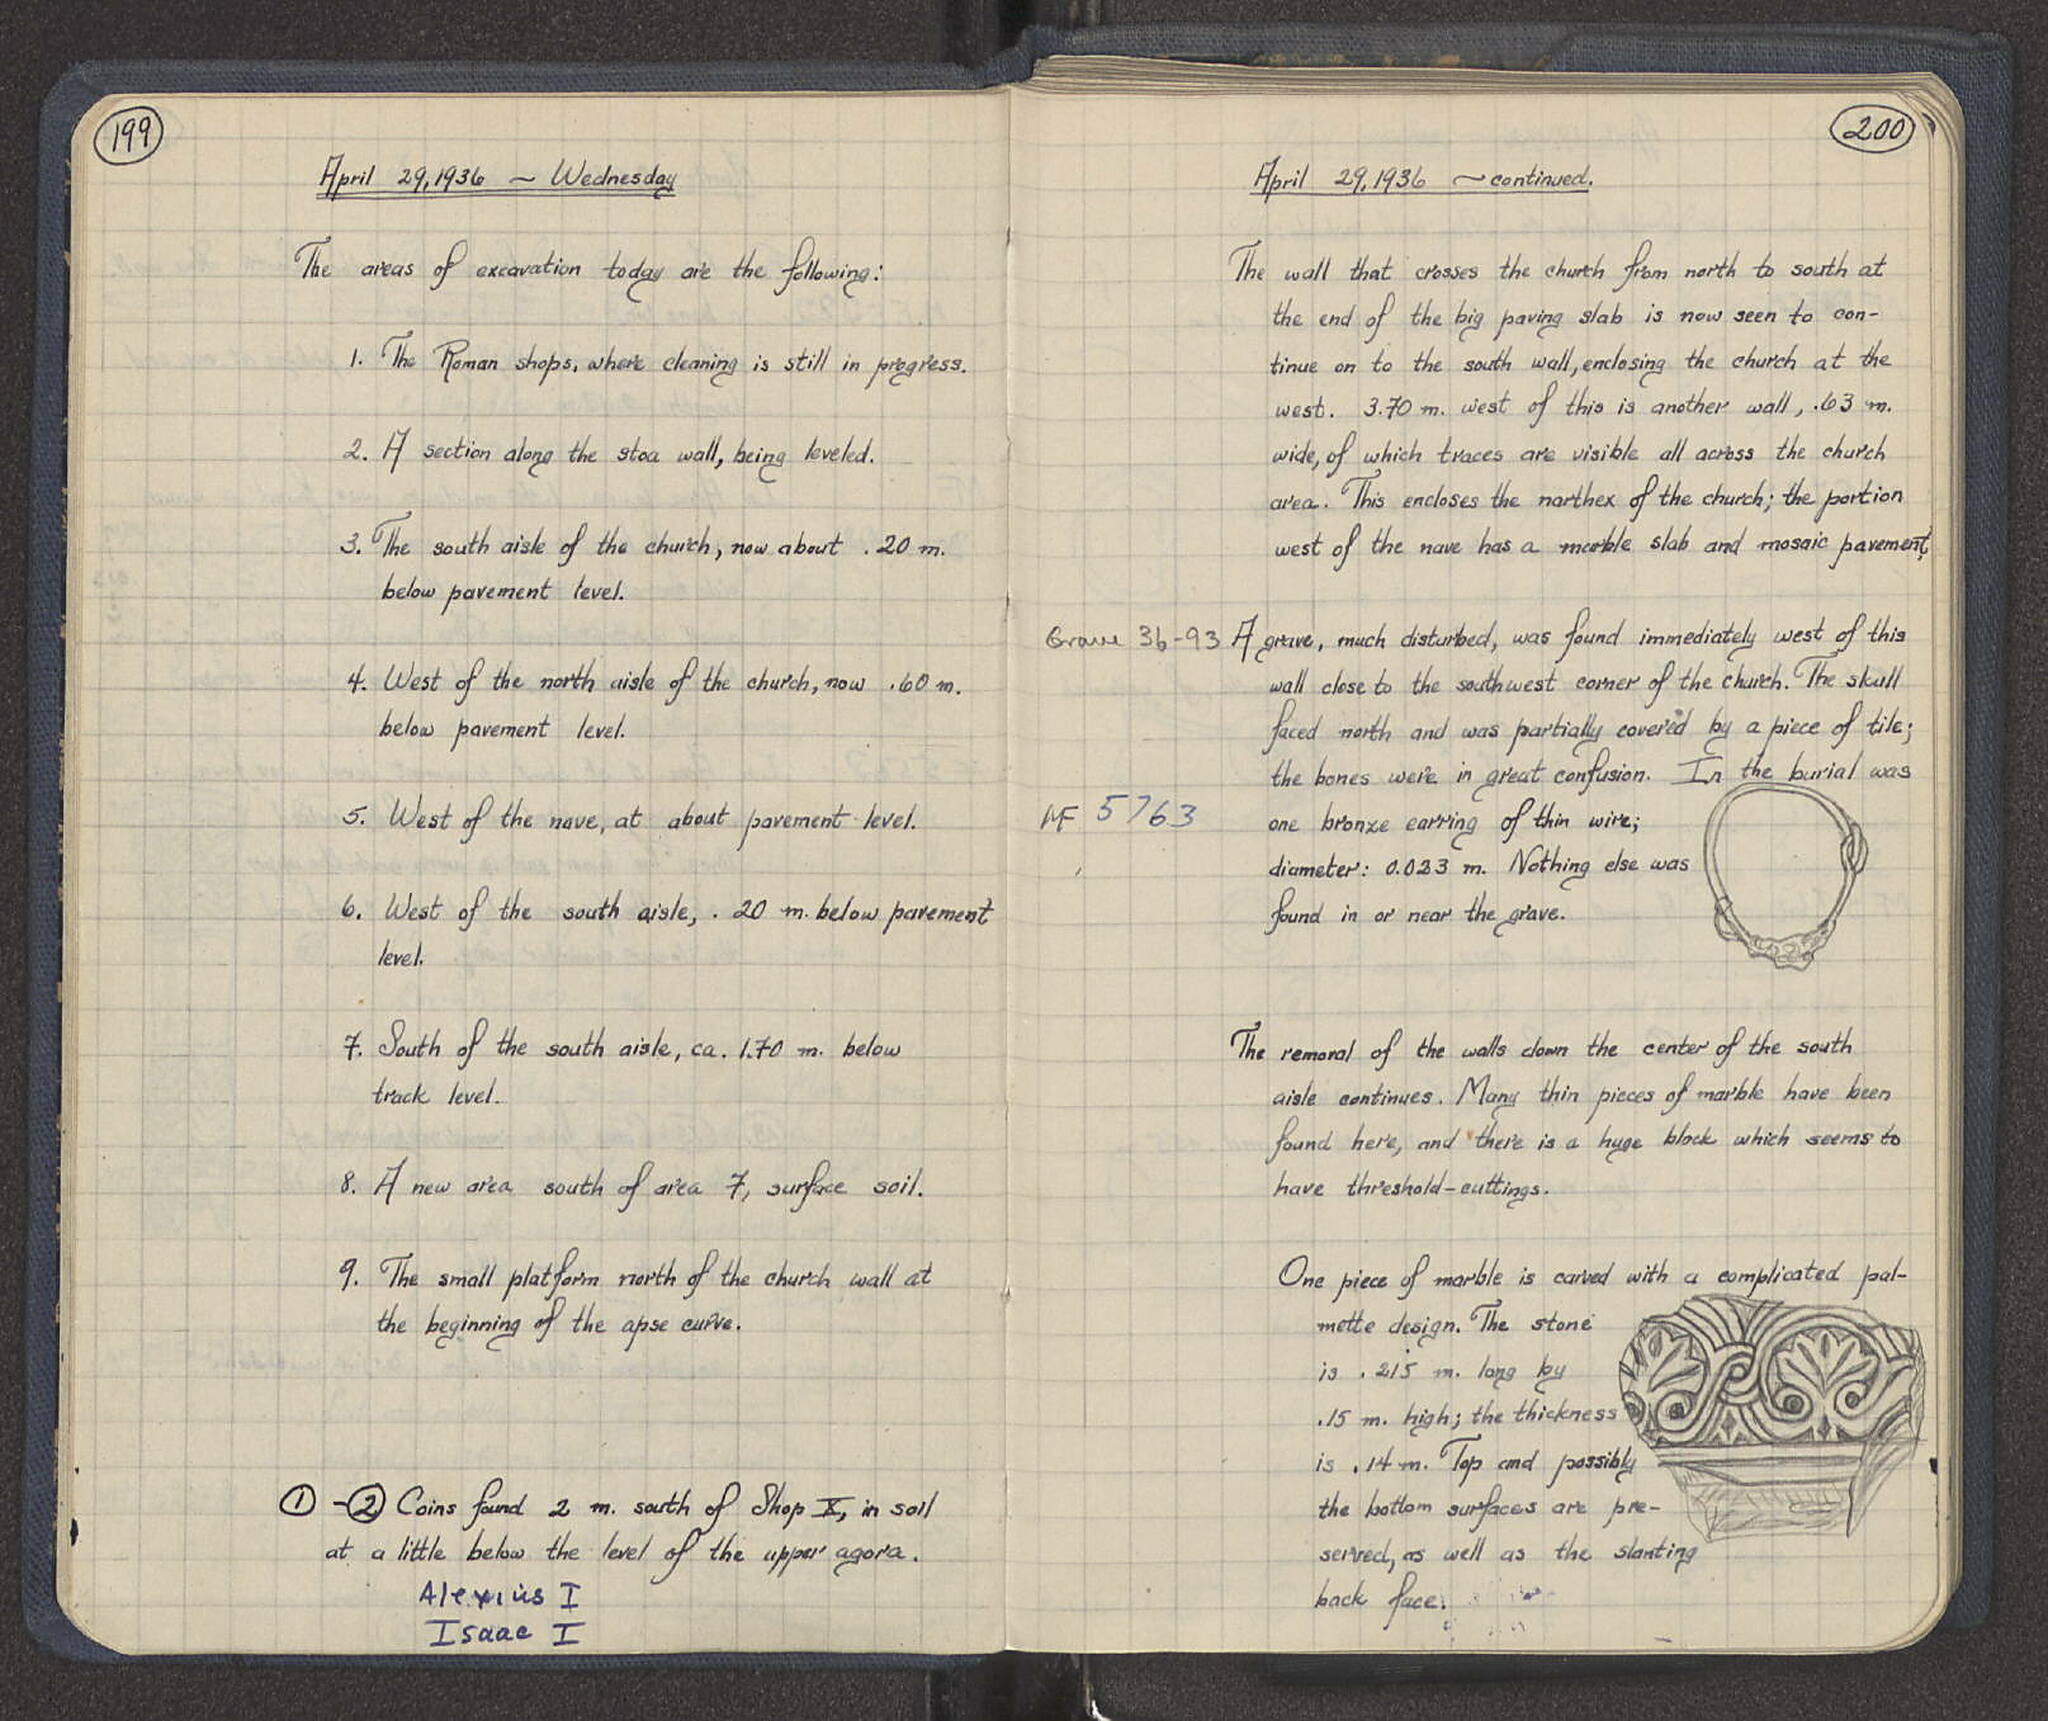 199
April 29, 1936 ~ Wednesday
The areas of excavation today are the following:
1. The Roman shops, where cleaning is still in progress.
2. A section along the stoa wall, being leveled.
3. The south aisle of the church, now about .20 m.
below pavement level.
4. West of the north aisle of the church, now .60 m.
below pavement level.
5. West of the nave, at about pavement level.
6. West of the south aisle, .20 m. below pavement
level.
7. South of the south aisle, ca. 1.70 m. below
track level.
8. A new area south of area 7, surface soil.
9. The small platform north of the church wall at
the beginning of the apse curve.
① - ② Coins found 2 m. south of Shop X, in soil
at a little below the level of the upper agora.
Alexius I
Isaac I
200
April 29, 1936 ~ continued.
The wall that crosses the church from north to south at
the end of the big paving slab is now seen to con-
tinue on to the south wall, enclosing the church at the
west. 3.70 m. west of this is another wall, .63 m.
wide, of which traces are visible all across the church
area. This encloses the narthex of the church; the portion
west of the nave has a marble slab and mosaic pavement,
Grave 36-93 A grave, much disturbed, was found immediately west of this
wall close to the southwest corner of the church. The skull
faced north and was partially covered by a piece of tile;
the bones were in great confusion. In the burial was
MF 5763 one bronze earring of thin wire;
diameter: 0.023 m. Nothing else was
found in or near the grave.
The removal of the walls down the center of the south
aisle continues. Many thin pieces of marble have been
found here, and there is a huge block which seems to
have threshold-cuttings.
One piece of marble is carved with a complicated pal-
mette design. The stone
is .215 m. long by
.15 m. high; the thickness
is .14 m. Top and possibly
the bottom surfaces are pre-
served, as well as the slanting
back face.